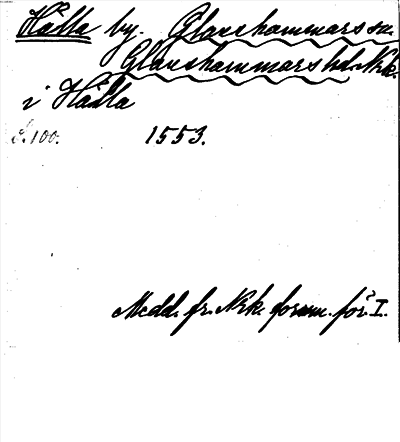 Hålla by. Glanshammars sn.
Glanshammars hd. Nrk.
i Hålla
S. 100. 1553.
Medd. fr. Nrk. fornm. för. I.